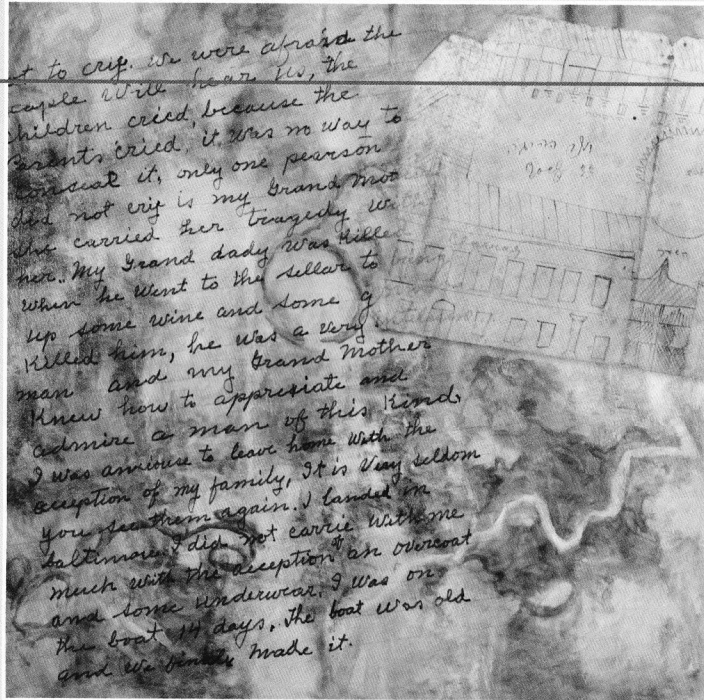 t to cry. we were afraid the
eaple will hear us, the
children cried, because the
Parents cried, it was no way to
conseal it, only one pearson
did not cry is my Grand Mot
she carried her tragedy with
her.. My Grand dady was Killed
when he went to the sellar to bring
up some wine and some g
Killed him, he was a very
man and my Grand Mother
Knew how to appresiate and
admire a man of this Kind,
I was anxiouse to leave home with the
acception of my family, It is Very seldom
you see them again. I landed in
baltimore I did not carrie with me
much with the acception of an overcoat
and some underwear, I was on
the boat 14 days, The boat was old
and we finaly made it.